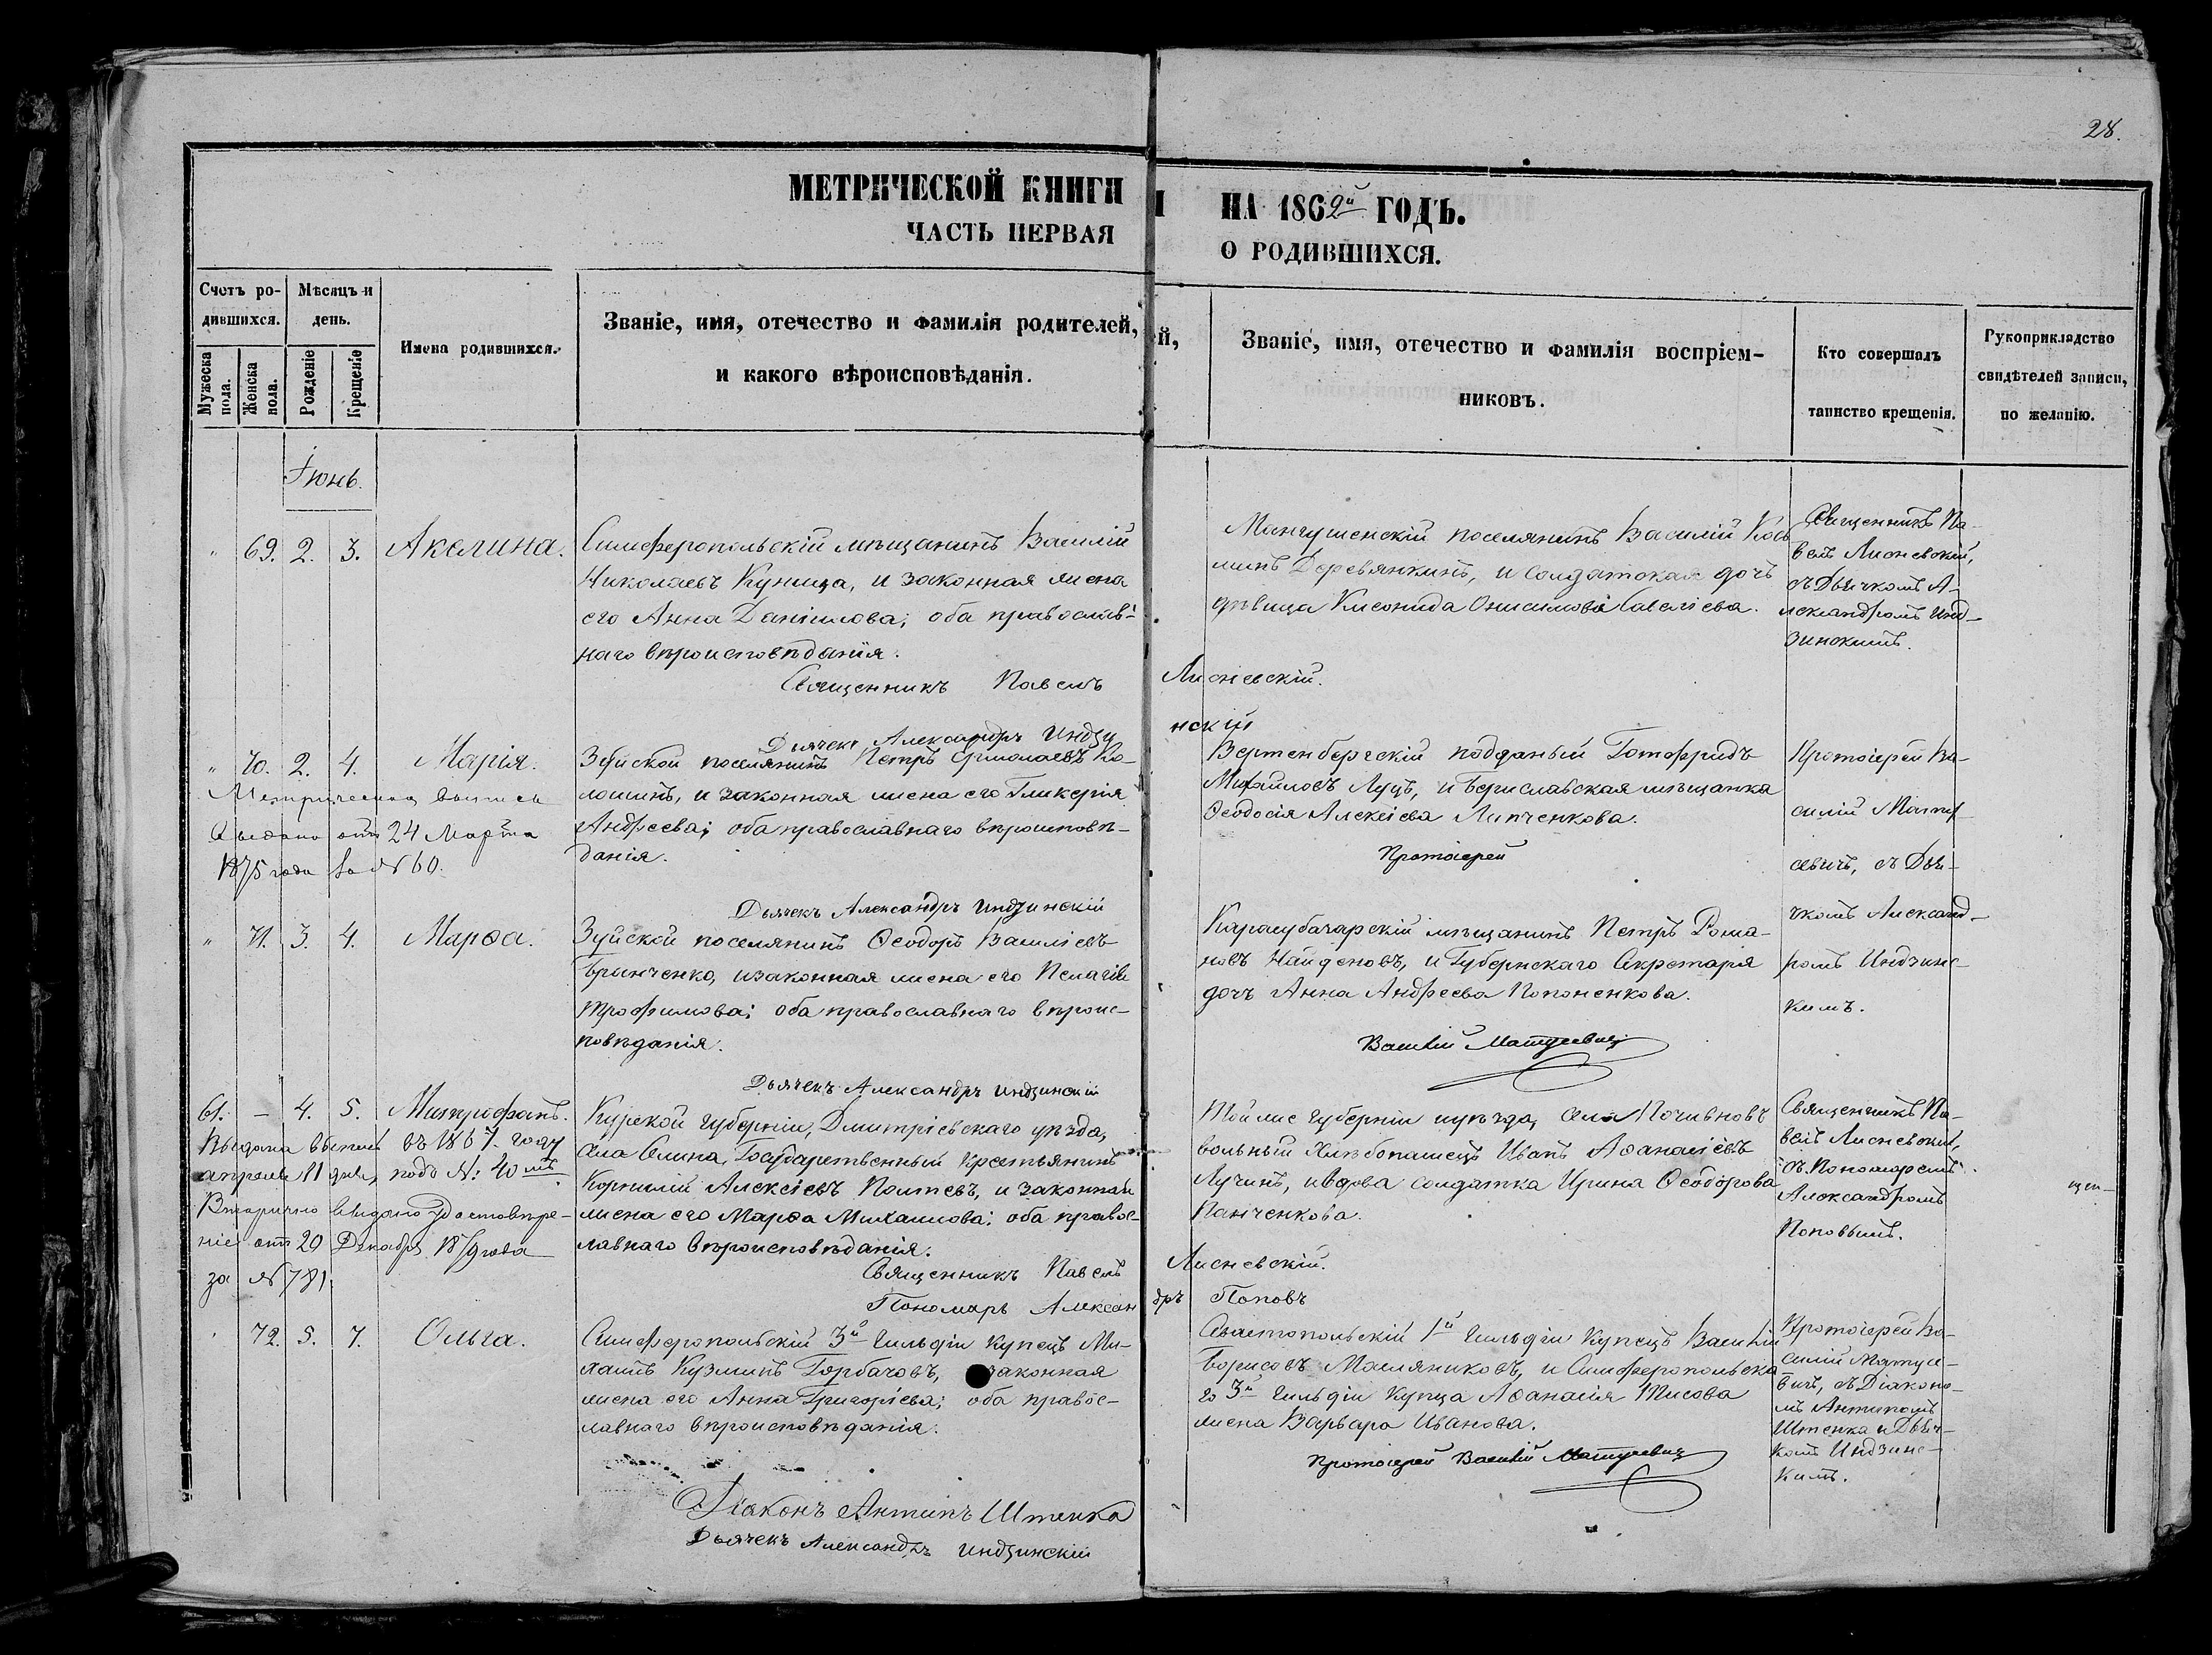 28.
МЕТРИЧЕСКОЙ КНИГИ НА 1862й ГОДЪ.
ЧАСТЬ ПЕРВАЯ О РОДИВШИХСЯ.
Счетъ родившихся.
Мужеска пола.
Женска пола.
Мѣсяцъ и день.
Рожденіе
Крещеніе
Имена родившихся.
Званіе, имя, отечество и фамилія родителей,
и какого вѣроисповѣданія.
Званіе, имя, отечество и фамилія воспріем-
никовъ.
Кто совершалъ
таинство крещенія.
Рукоприкладство
свидѣтелей записи,
по желанію.
Іюнь.
" 69. 2. 3. Акелина.
Симферопольскій мѣщанинъ Василій
Николаевъ Куница, и законная жена
его Анна Даніилова; оба православ-
наго вѣроисповѣданія.
Священникъ Павелъ Лисневскій.
Дьячекъ Александръ Индзинскій
Мангушенскій поселянинъ Василій Кось
минъ Деревянкинъ, и Солдатская дочь
дѣвица Савеліева.
Священникъ Па-
велъ Лисневскій,
съ Дьячкомъ А-
лександромъ Инд-
зинскимъ.
" 70. 2. 4. Марія.
Метрическая выпись
выдана отъ 24 Марта
1875 года за № 60.
Зуйской поселянинъ Петръ Ко-
лошинъ, и законная жена его Гликерія
Андреева; оба православнаго вѣроисповѣ-
данія.
Дьячекъ Александръ Индзинскій
Вертенбергскій подданый Готофридъ
Михайловъ Луцъ, и Бериславская мѣщанка
Ѳеодосія Алексіева Липченкова.
Протоіерей
Протоіерей Ва-
силій Мату-
севичъ, съ Дья-
чкомъ Александ-
ромъ Индзинс-
кимъ.
" 71. 3. 4. Марѳа.
Зуйской поселянинъ Ѳеодоръ Василіевъ
Гринченко, и законная жена его Пелагія
Трофимова; оба православнаго вѣроис-
повѣданія.
Дьячекъ Александръ Индзинскій
Карасубазарскій мѣщанинъ Петръ Рома-
новъ Найденовъ, и Губернскаго Секретаря
дочь Анна Андреева Попоненкова.
Василій Матусевичъ
61. - 4. 5. Митрофанъ.
Выдана выпись въ 1867. году
апреля 11 дня, подъ №: 40мъ.
Вторично выдано удостовѣре-
ніе отъ 20 Декабря года
за № 781.
Курской губерніи, Дмитріевскаго уѣзда,
села Селина, Государственный крестьянинъ
Корнилій Алексіевъ Полтевъ, и законная
жена его Марѳа Михаилова; оба правос-
лавнаго вѣроисповѣданія.
Священникъ Павелъ Лисневскій.
Пономарь Александръ Поповъ
Той же губерніи и уѣзда, села
вольный хлѣбопашецъ Иванъ Аѳанасіевъ
Лучинъ, и вдова солдатка Ирина Ѳеодорова
Панченкова.
Священникъ Па-
велъ Лисневскій,
съ Пономаремъ
Александромъ
Поповымъ.
" 72. 5. 7. Ольга.
Симферопольскій 3й Гильдіи купецъ Ми-
хаилъ Кузминъ Горбачовъ, законная
жена его Анна Григоріева; оба правос-
лавнаго вѣроисповѣданія.
Севастопольскій 1й Гильдіи купецъ Василій
Борисовъ Масляниковъ, и Симферопольска
го 3й Гильдіи купца Аѳанасія
жена Варвара Иванова.
Протоіерей Василій Матусевичъ
Протоіерей Ва-
силій Матусе-
вичъ, съ Діаконо-
мъ Антипомъ
Штенка и Дьяч-
комъ Индзинс-
кимъ.
Діаконъ Антипъ Штенка
Дьячекъ Александръ Индзинскій